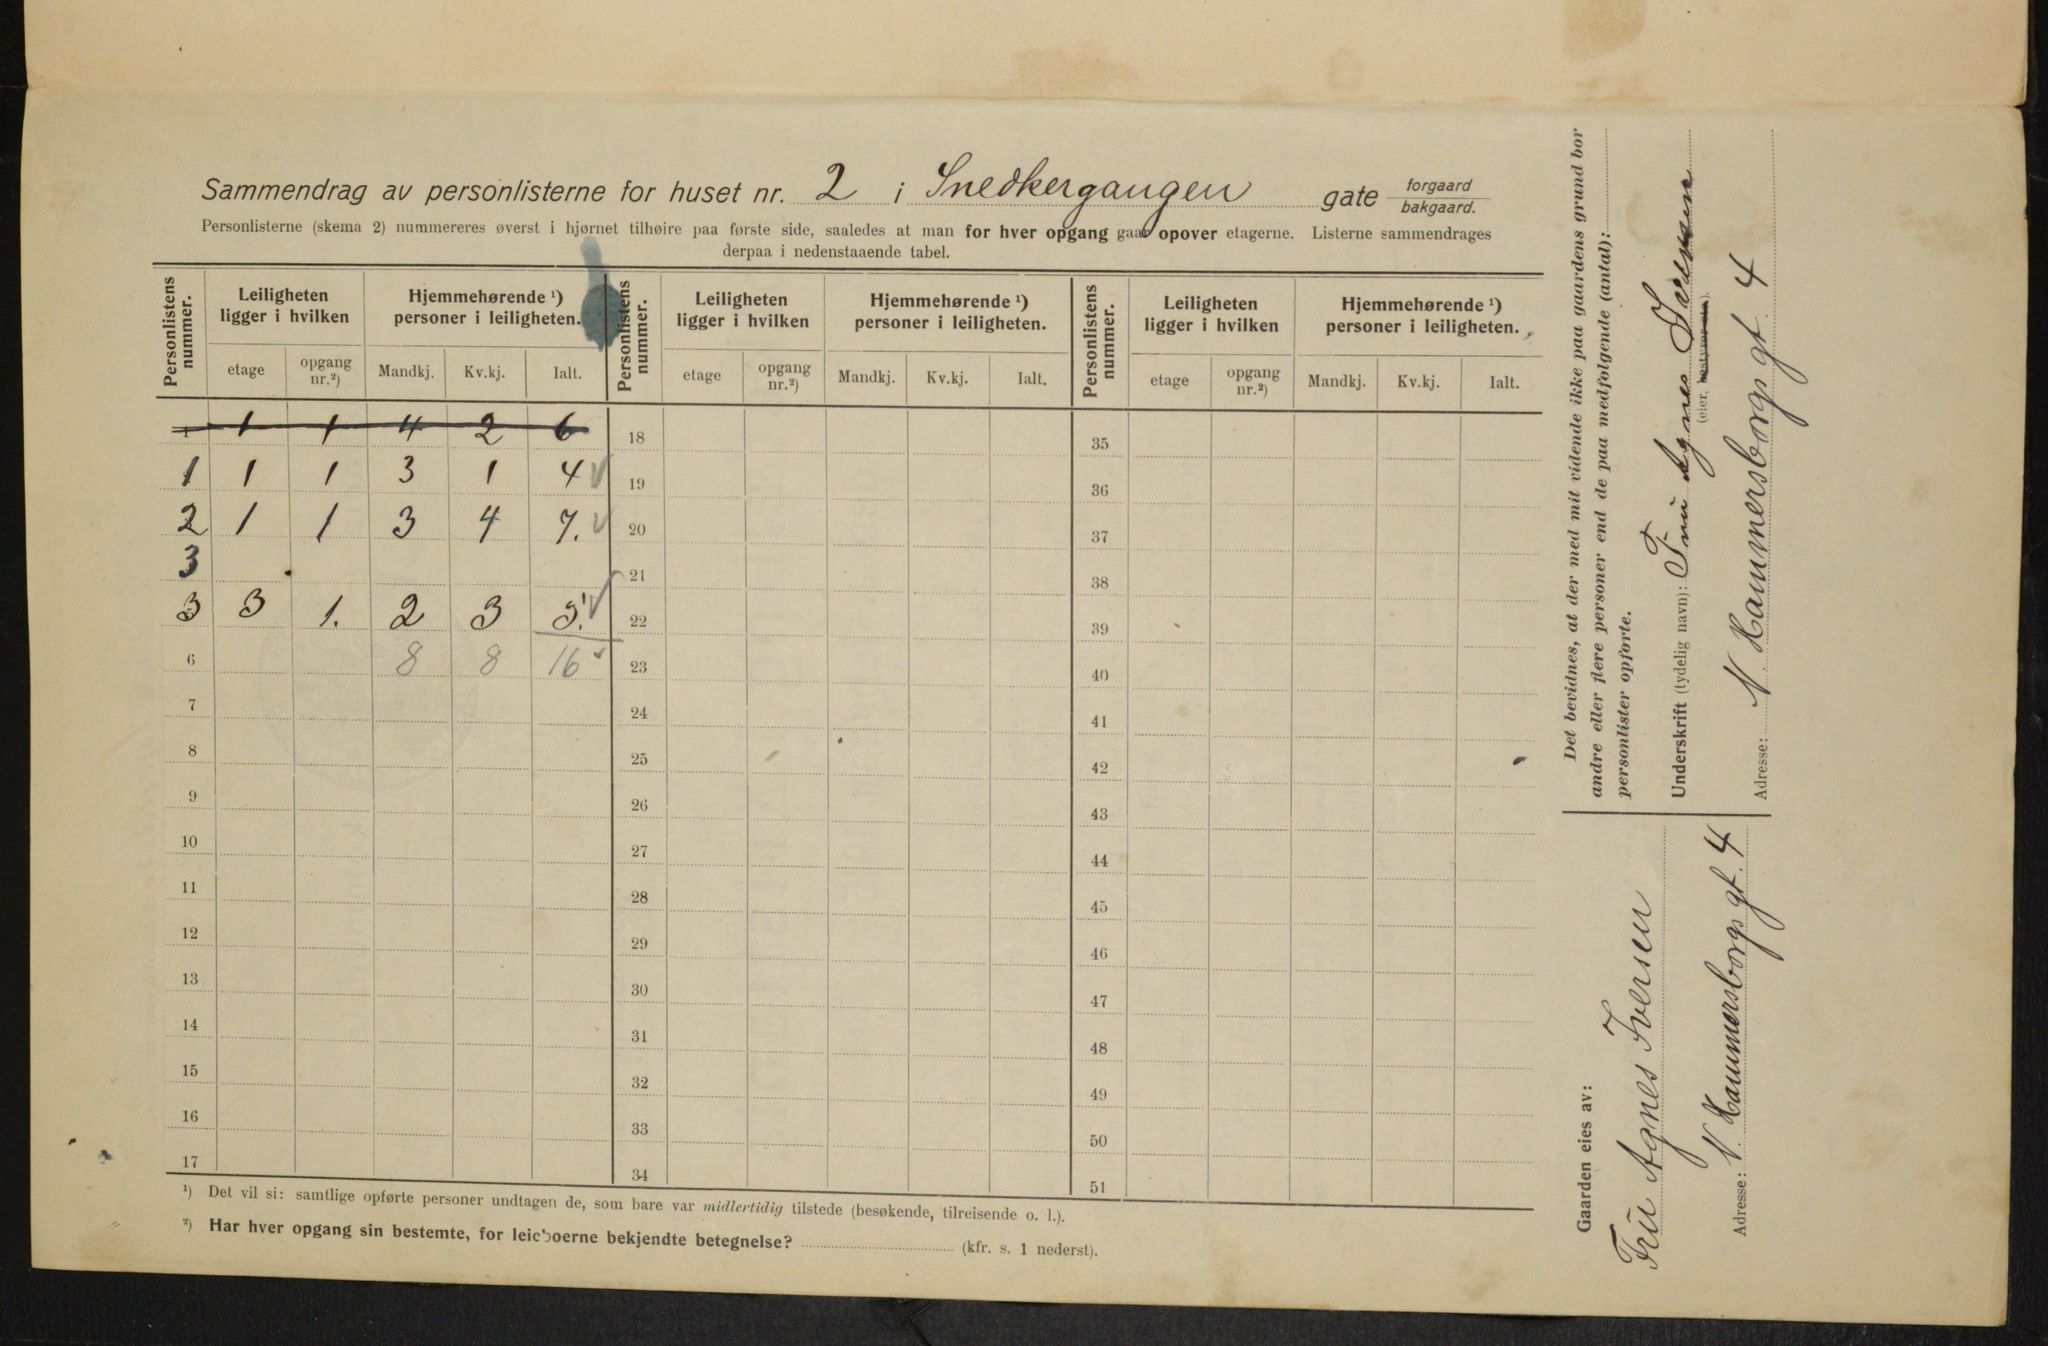 Sammendrag av personlisterne for huset nr. 2 i Snedkergangen gate forgaard bakgaard.
Personlisterne (skema 2) nummereres øverst i hjørnet tilhøire paa første side, saaledes at man for hver opgang gaar opover etagerne. Listerne sammendrages
derpaa i nedenstaaende tabel.
Personlistens nummer. Leiligheten ligger i hvilken Hjemmehørende ¹) personer i leiligheten. Personlistens nummer. Leiligheten ligger i hvilken Hjemmehørende ¹) personer i leiligheten. Personlistens nummer. Leiligheten ligger i hvilken Hjemmehørende ¹) personer i leiligheten.
etage opgang nr.²) Mandkj. Kv.kj. Ialt. etage opgang nr.²) Mandkj. Kv.kj. Ialt. etage opgang nr.²) Mandkj. Kv.kj. Ialt.
1 1 1 4 2 6 18 35
1 1 1 3 1 4 19 36
2 1 1 3 4 7. 20 37
3 21 38
3 3 1. 2 3 5. 22 39
6 8 8 16 23 40
7 24 41
8 25 42
9 26 43
10 27 44
11 28 45
12 29 46
13 30 47
14 31 48
15 32 49
16 33 50
17 34 51
¹) Det vil si: samtlige opførte personer undtagen de, som bare var midlertidig tilstede (besøkende, tilreisende o. l.).
²) Har hver opgang sin bestemte, for leieboerne bekjendte betegnelse? (kfr. s. 1 nederst).
Det bevidnes, at der med mit vidende ikke paa gaardens grund bor
andre eller flere personer end de paa medfølgende (antal):
personlister opførte.
Underskrift (tydelig navn): Fru Agnes Iversen
(eier, bestyrer etc).
Adresse: N. Hammersborgs gt. 4
Gaarden eies av:
Frü Agnes Iversen
Adresse: N. Hammersborgs gt. 4